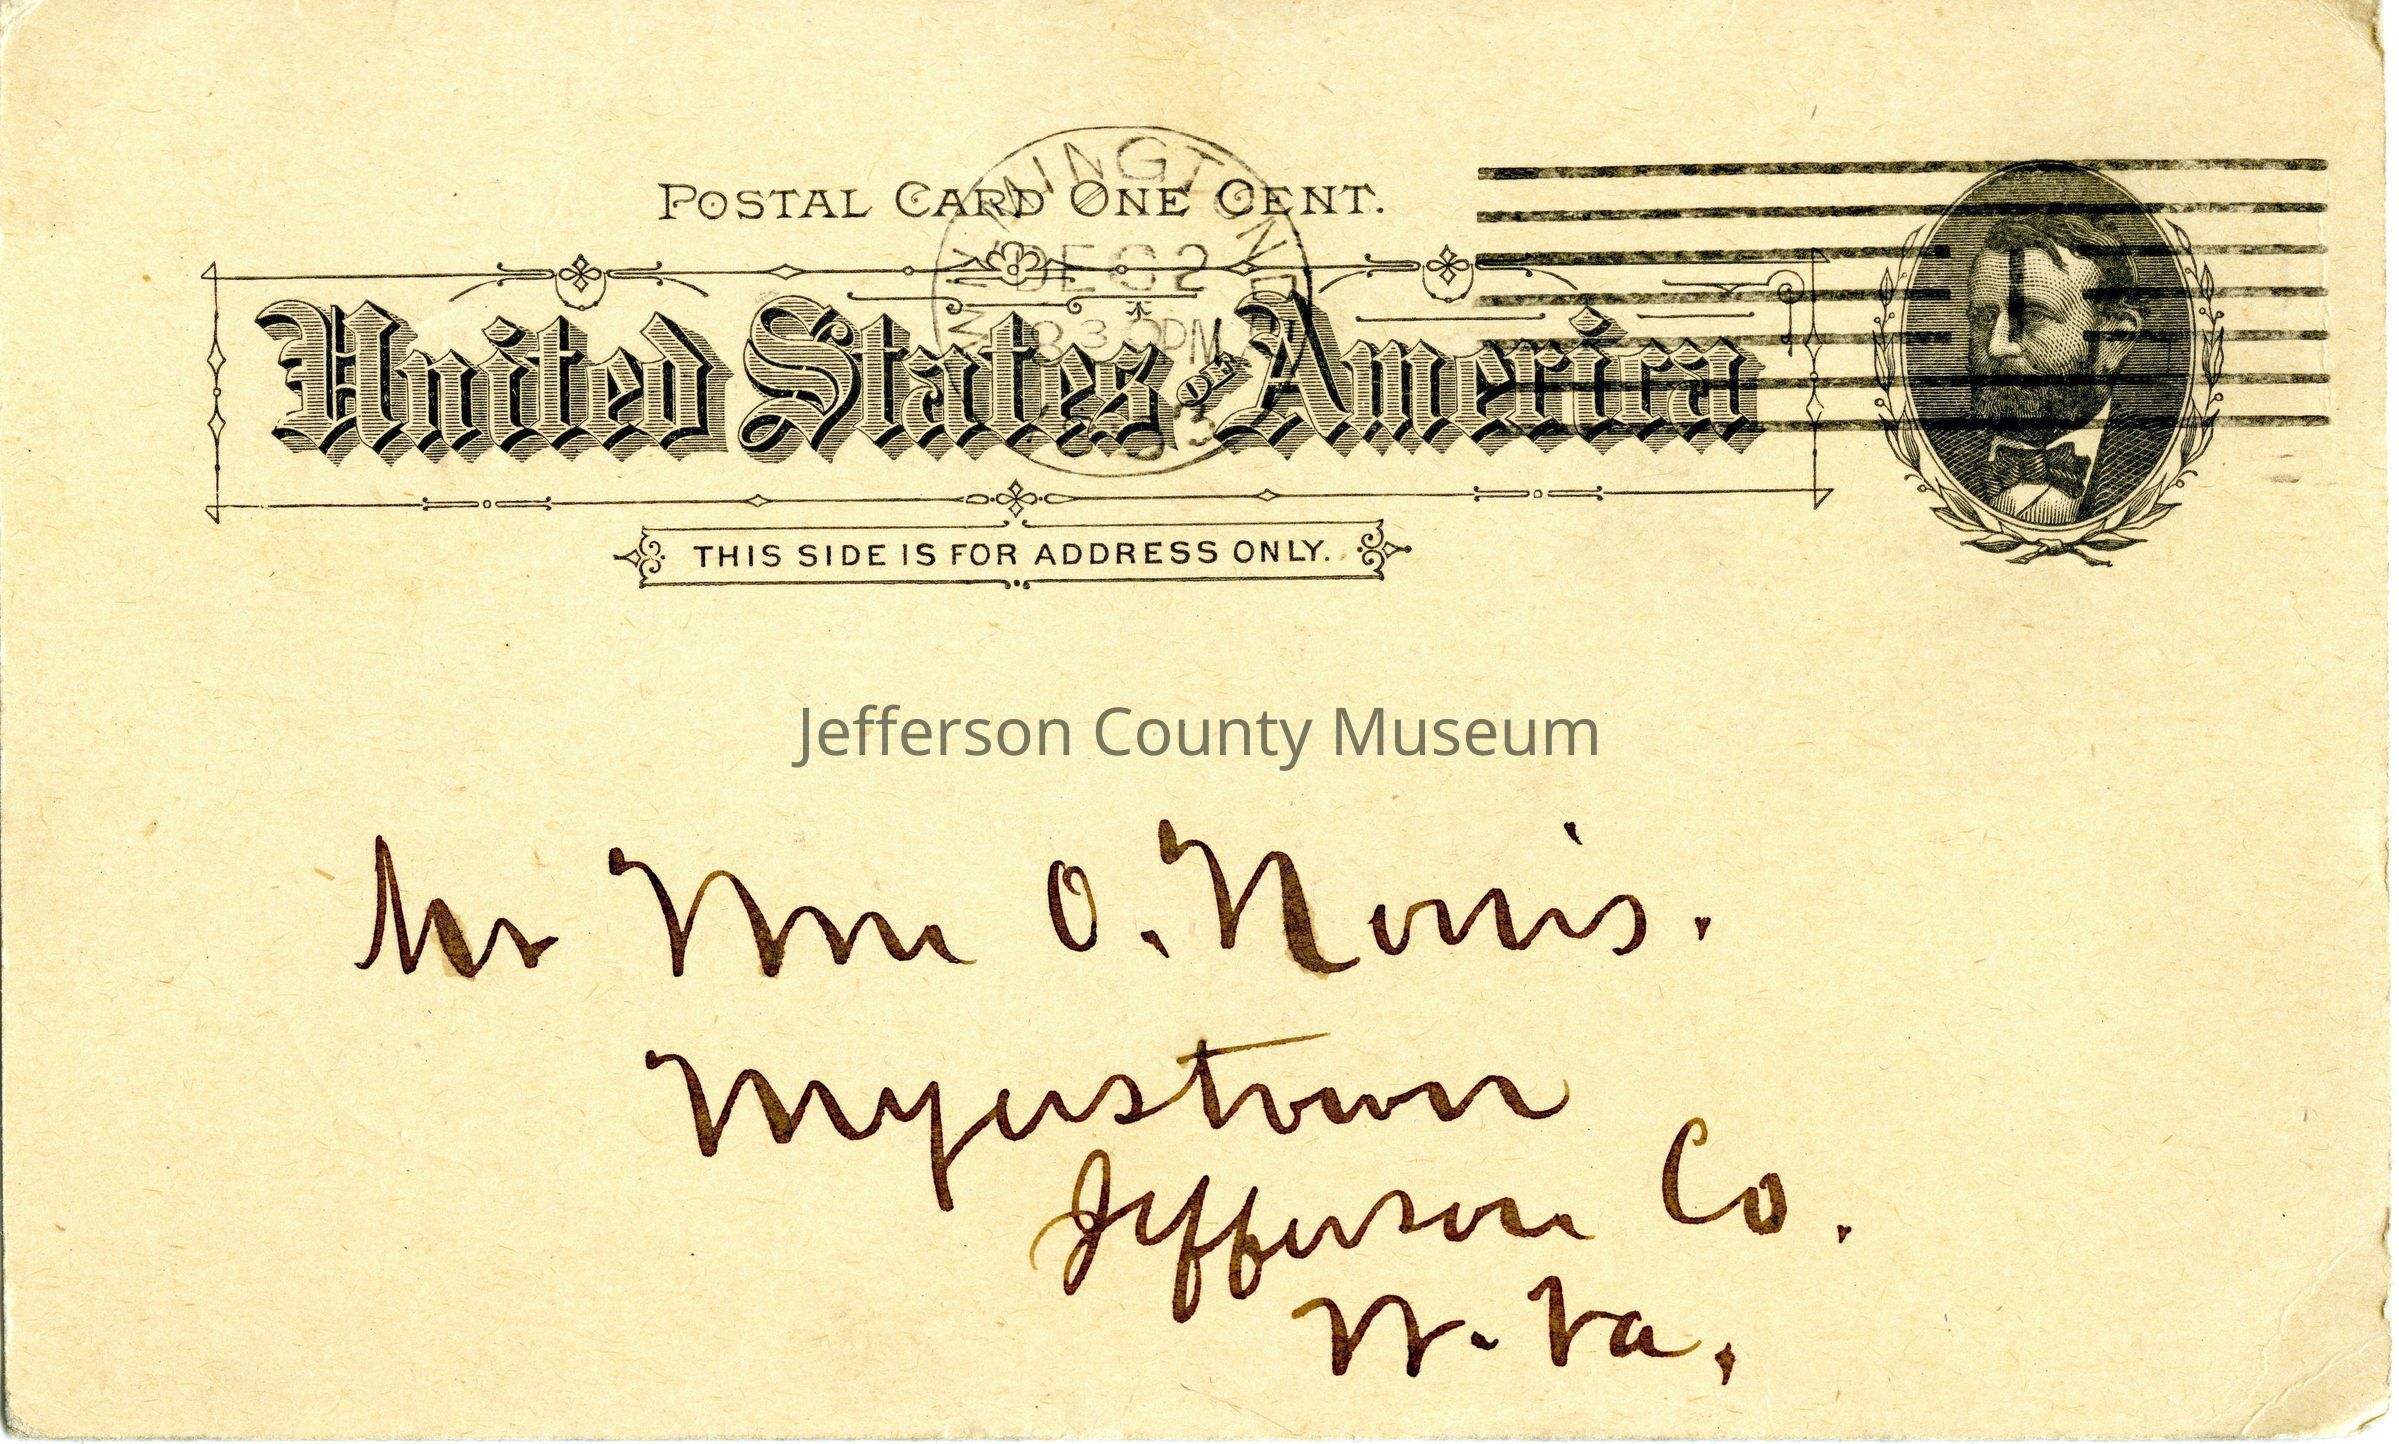 POSTAL CARD ONE CENT.
DEC 2
3 30PM
United States OF America
THIS SIDE IS FOR ADDRESS ONLY.
Jefferson County Museum
Mr Wm O. Norris.
Myerstown
Jefferson Co.
W. Va.